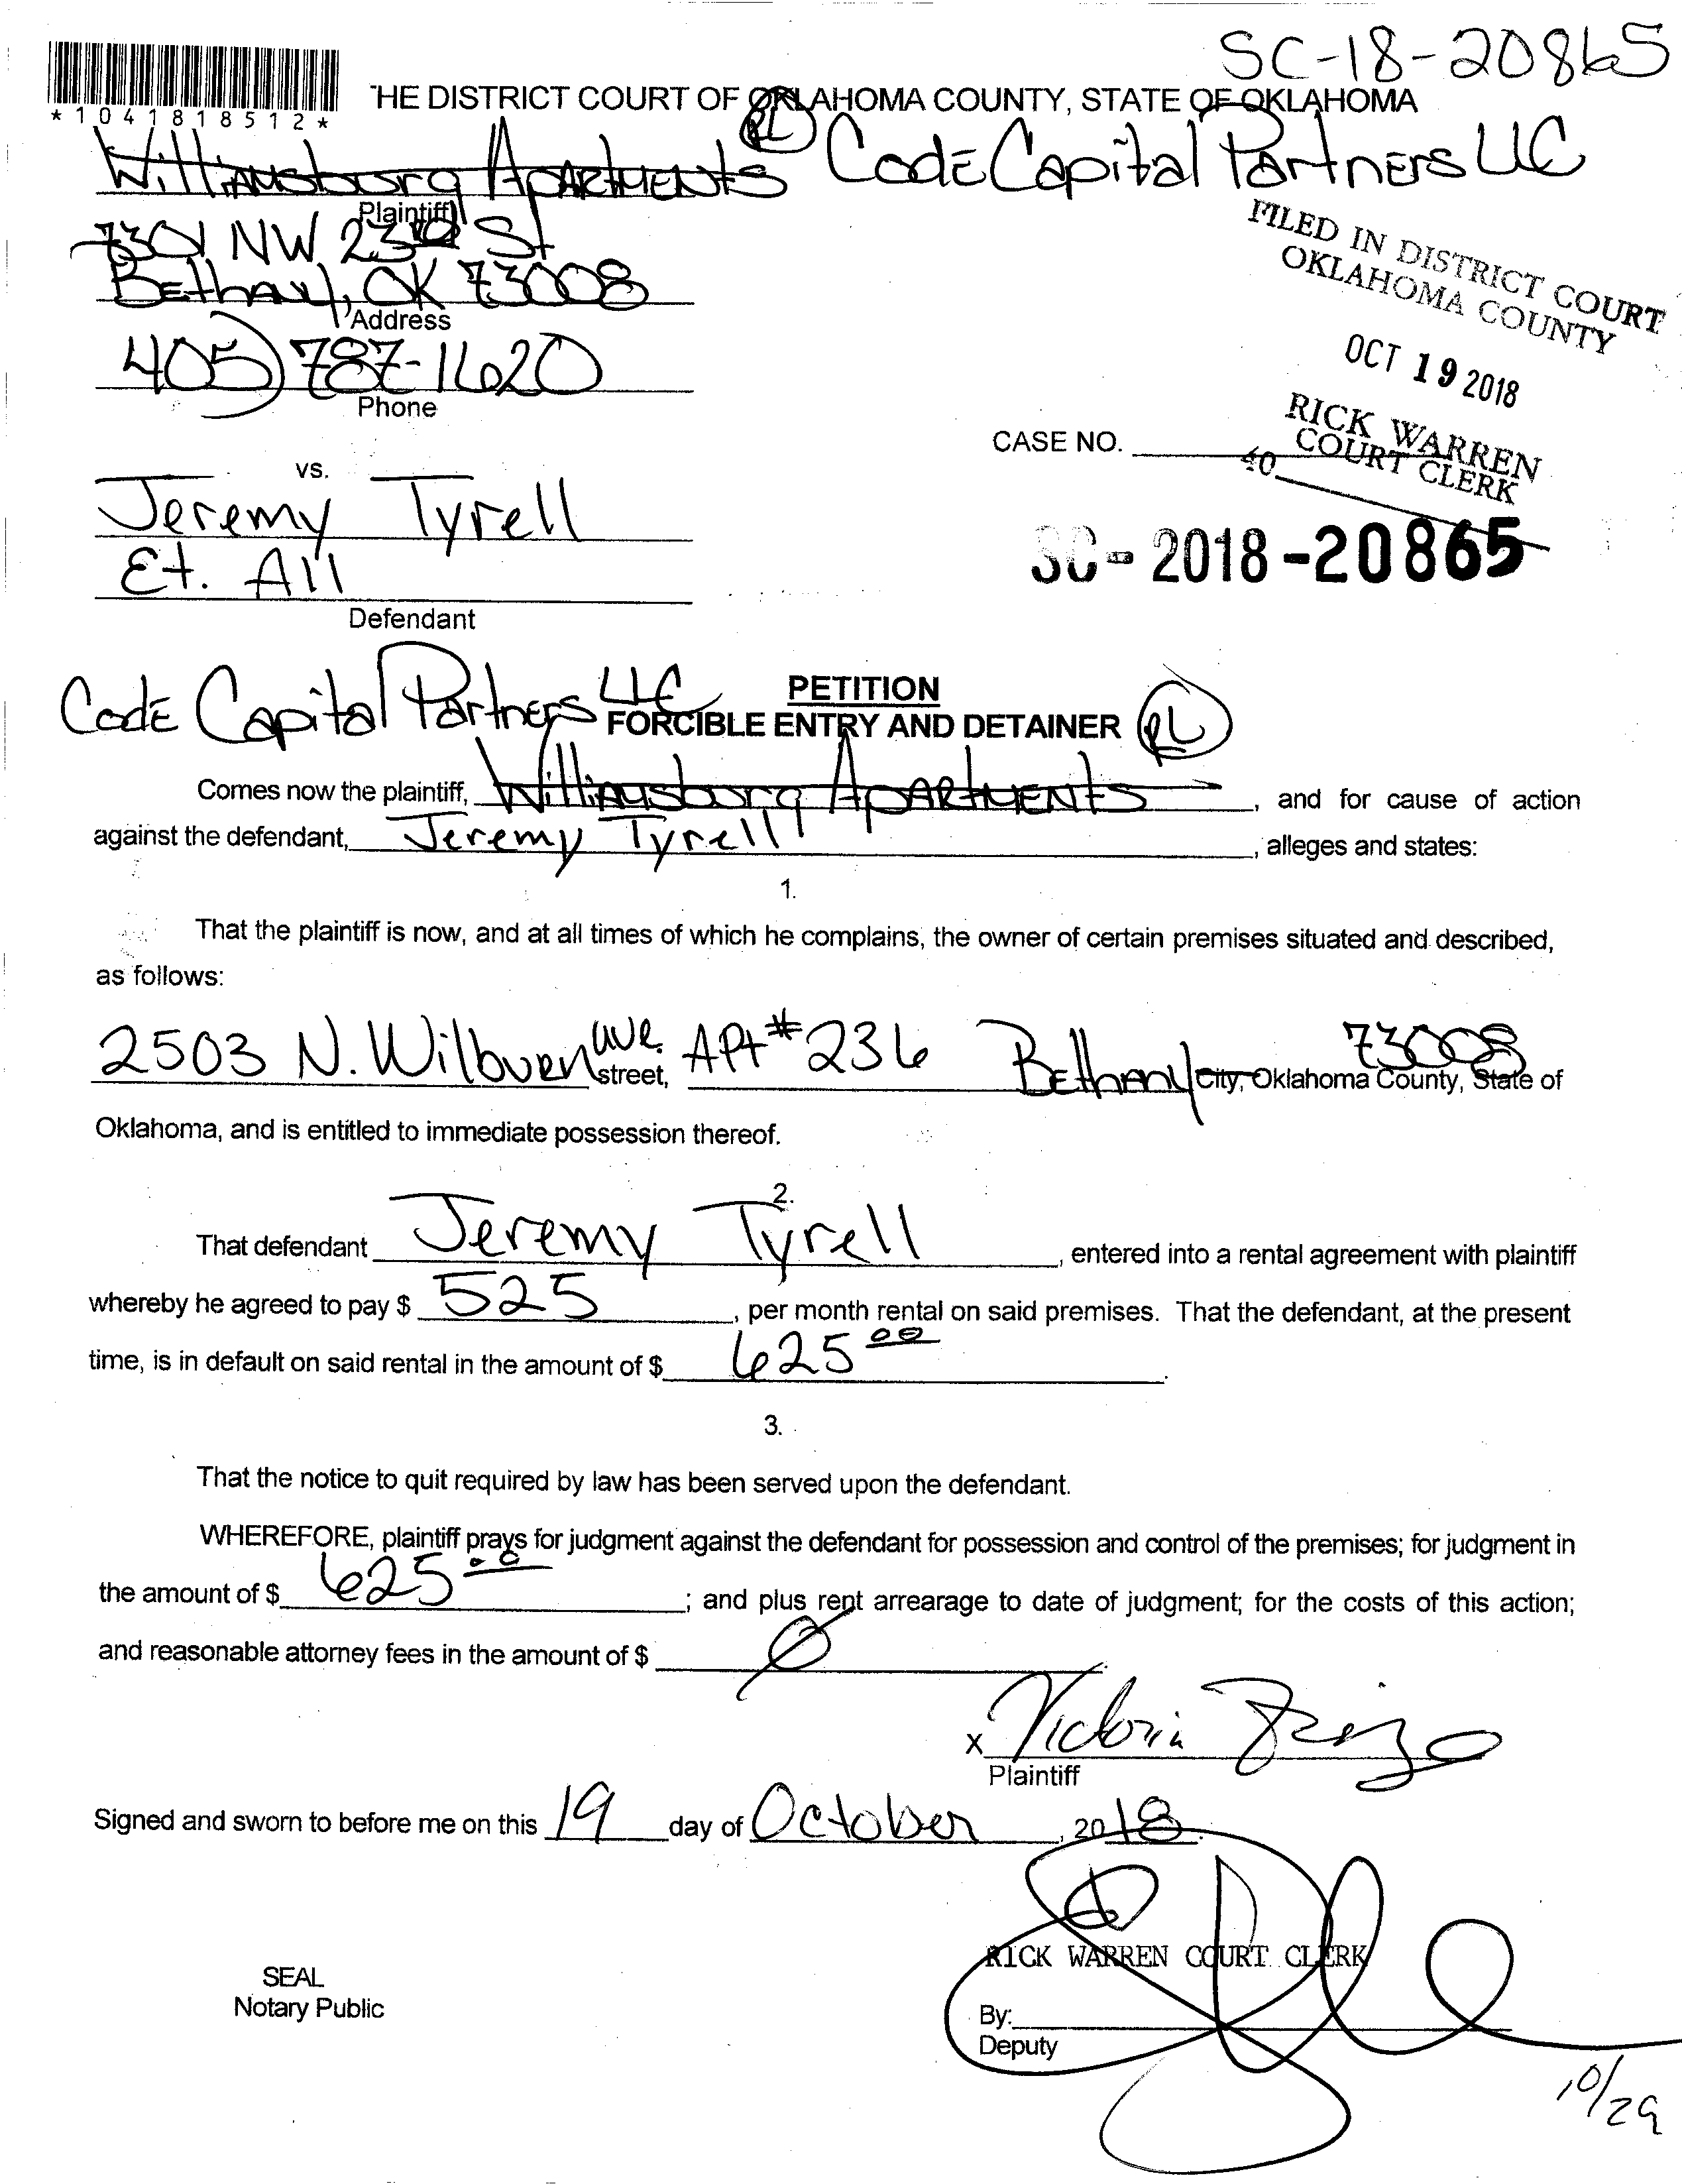 SC-18-20865
*1041818512*
THE DISTRICT COURT OF OKLAHOMA COUNTY, STATE OF OKLAHOMA
Williamsburg Apartments RL Code Capital Partners LLC
Plaintiff
7301 NW 23rd St
Bethany, OK 73008
Address
405) 787-1620
Phone
FILED IN DISTRICT COURT
OKLAHOMA COUNTY
OCT 19 2018
RICK WARREN
COURT CLERK
40
CASE NO.
SC-2018-20865
vs.
Jeremy Tyrell
Et. All
Defendant
Code Capital Partners LLC
PETITION
FORCIBLE ENTRY AND DETAINER RL
Comes now the plaintiff, Williamsburg Apartments, and for cause of action
against the defendant, Jeremy Tyrell, alleges and states:
1.
That the plaintiff is now, and at all times of which he complains, the owner of certain premises situated and described,
as follows:
2503 N. Wilburn ave. street, APt # 236 Bethany City, Oklahoma County, 73008 State of
Oklahoma, and is entitled to immediate possession thereof.
2.
That defendant Jeremy Tyrell, entered into a rental agreement with plaintiff
whereby he agreed to pay $ 525, per month rental on said premises. That the defendant, at the present
time, is in default on said rental in the amount of $ 625 00.
3.
That the notice to quit required by law has been served upon the defendant.
WHEREFORE, plaintiff prays for judgment against the defendant for possession and control of the premises; for judgment in
the amount of $ 625 00; and plus rent arrearage to date of judgment; for the costs of this action;
and reasonable attorney fees in the amount of $ Ø
X Victoria
Plaintiff
Signed and sworn to before me on this 19 day of October, 2018.
RICK WARREN COURT CLERK
SEAL
Notary Public
By:
Deputy
10/29